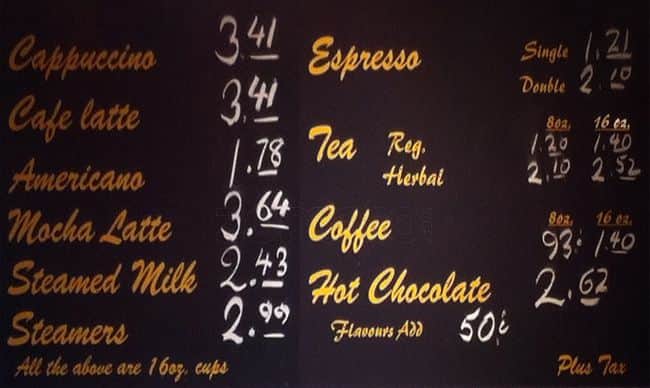 Cappuccino 3.41
Cafe latte 3.41
Americano 1.78
Mocha Latte 3.64
Steamed Milk 2.43
Steamers 2.99
All the above are 16oz. cups
Espresso Single 1.21
Double 2.10
8oz. 16 oz.
Tea Reg. 1.20 1.40
Herbal 2.10 2.52
8oz. 16 oz.
Coffee 93¢ 1.40
Hot Chocolate 2.62
Flavours Add 50¢
Plus Tax